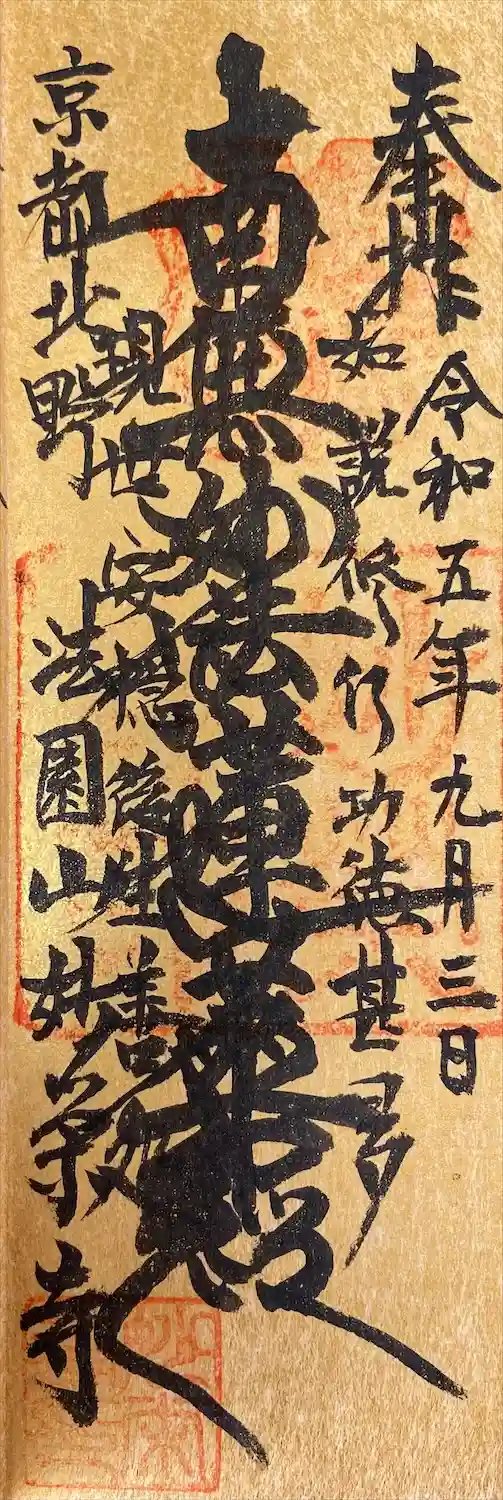 奉拝 令和五年九月三日
如説修行功徳甚多
南無妙法蓮華經
現世安穏後生善処
京都北野 法園山妙栄寺